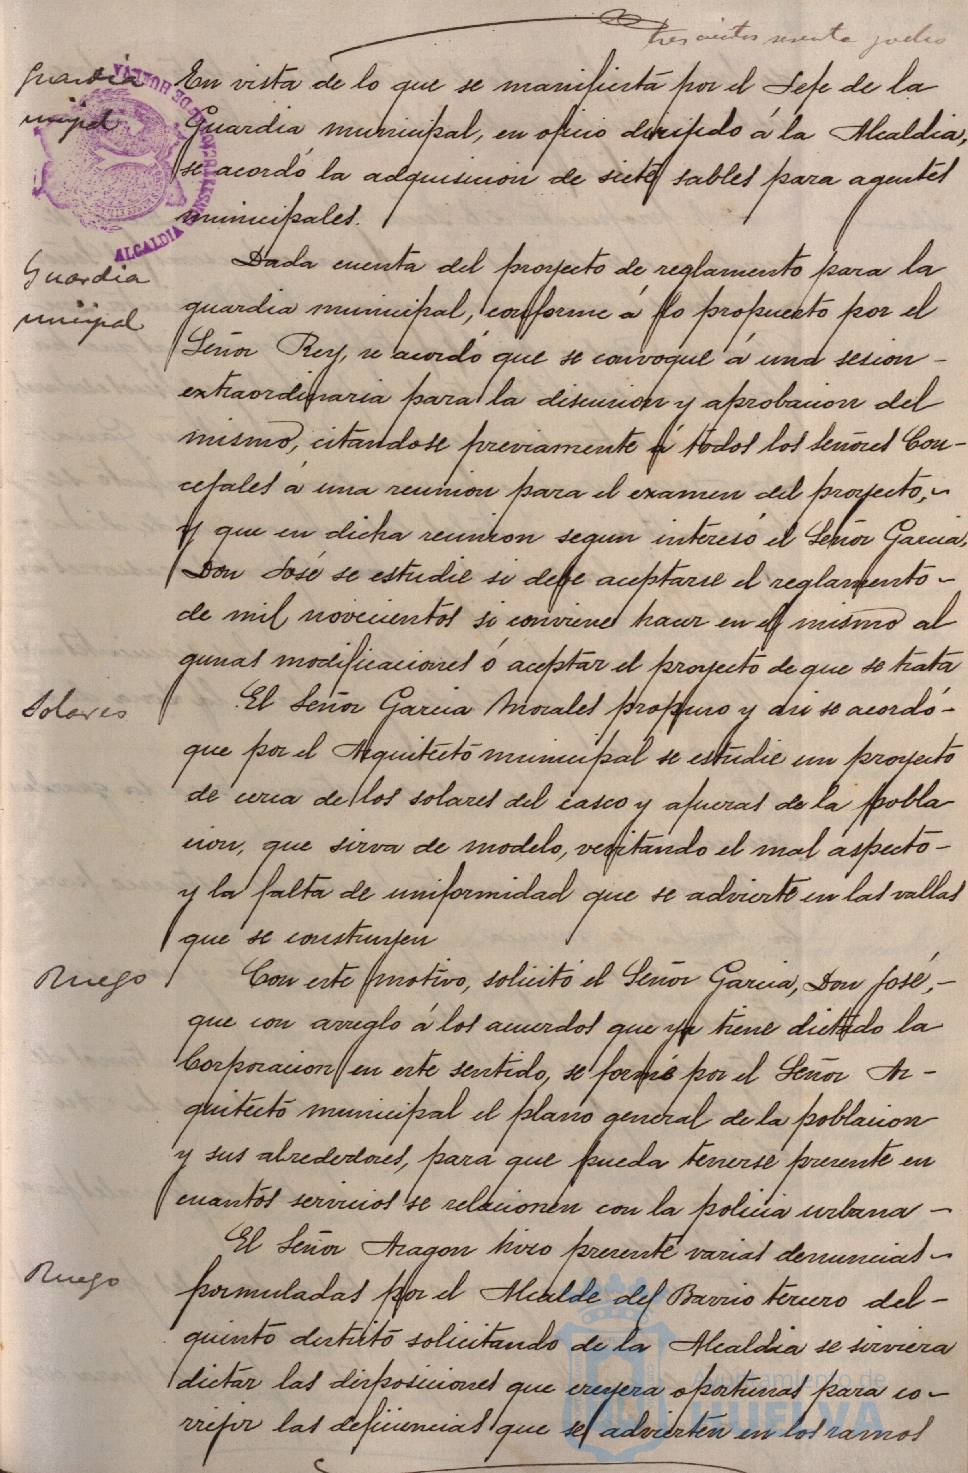 trescientos sesenta y ocho
Guardia En vista de lo que se manifiesta por el Jefe de la
mipal Guardia municipal, en oficio dirijido á la Alcaldia,
se acordó la adquisicion de siete sables para agentes
municipales.
ALCALDIA DE HUELVA
Guardia Dada cuenta del proyecto de reglamento para la
mipal guardia municipal, conforme á lo propuesto por el
Señor Rey, se acordó que se convoque á una sesion -
extraordinaria para la discusion y aprobacion del
mismo, citandose previamente á todos los señores Con-
cejales á una reunion para el examen del proyecto, ~
y que en dicha reunion segun interesó el Señor Garcia,
Don José se estudie si debe aceptarse el reglamento -
de mil novecientos si conviene hacer en el mismo al
gunas modificaciones ó aceptar el proyecto de que se trata
Solares El Señor Garcia Morales propuso y asi se acordó -
que por el Arquitecto municipal se estudie un proyecto
de cerca de los solares del casco y afueras de la pobla
cion, que sirva de modelo, evitando el mal aspecto -
y la falta de uniformidad que se advierte en las vallas
que se construyen
Ruego Con este motivo, solicitó el Señor Garcia, Don José, -
que con arreglo á los acuerdos que ya tiene dictado la
Corporacion en este sentido, se forme por el Señor Ar -
quitecto municipal el plano general de la poblacion
y sus alrededores, para que pueda tenerse presente en
cuantos servicios se relacionen con la policia urbana -
Ruego El Señor Aragon hizo presente varias denuncias -
formuladas por el Alcalde del Barrio tercero del -
quinto distrito solicitando de la Alcaldia se sirviera
dictar las disposiciones que creyera oportunas para co -
rrejir las deficiencias que se advierten en los ramos
Ayuntamiento de
HUELVA